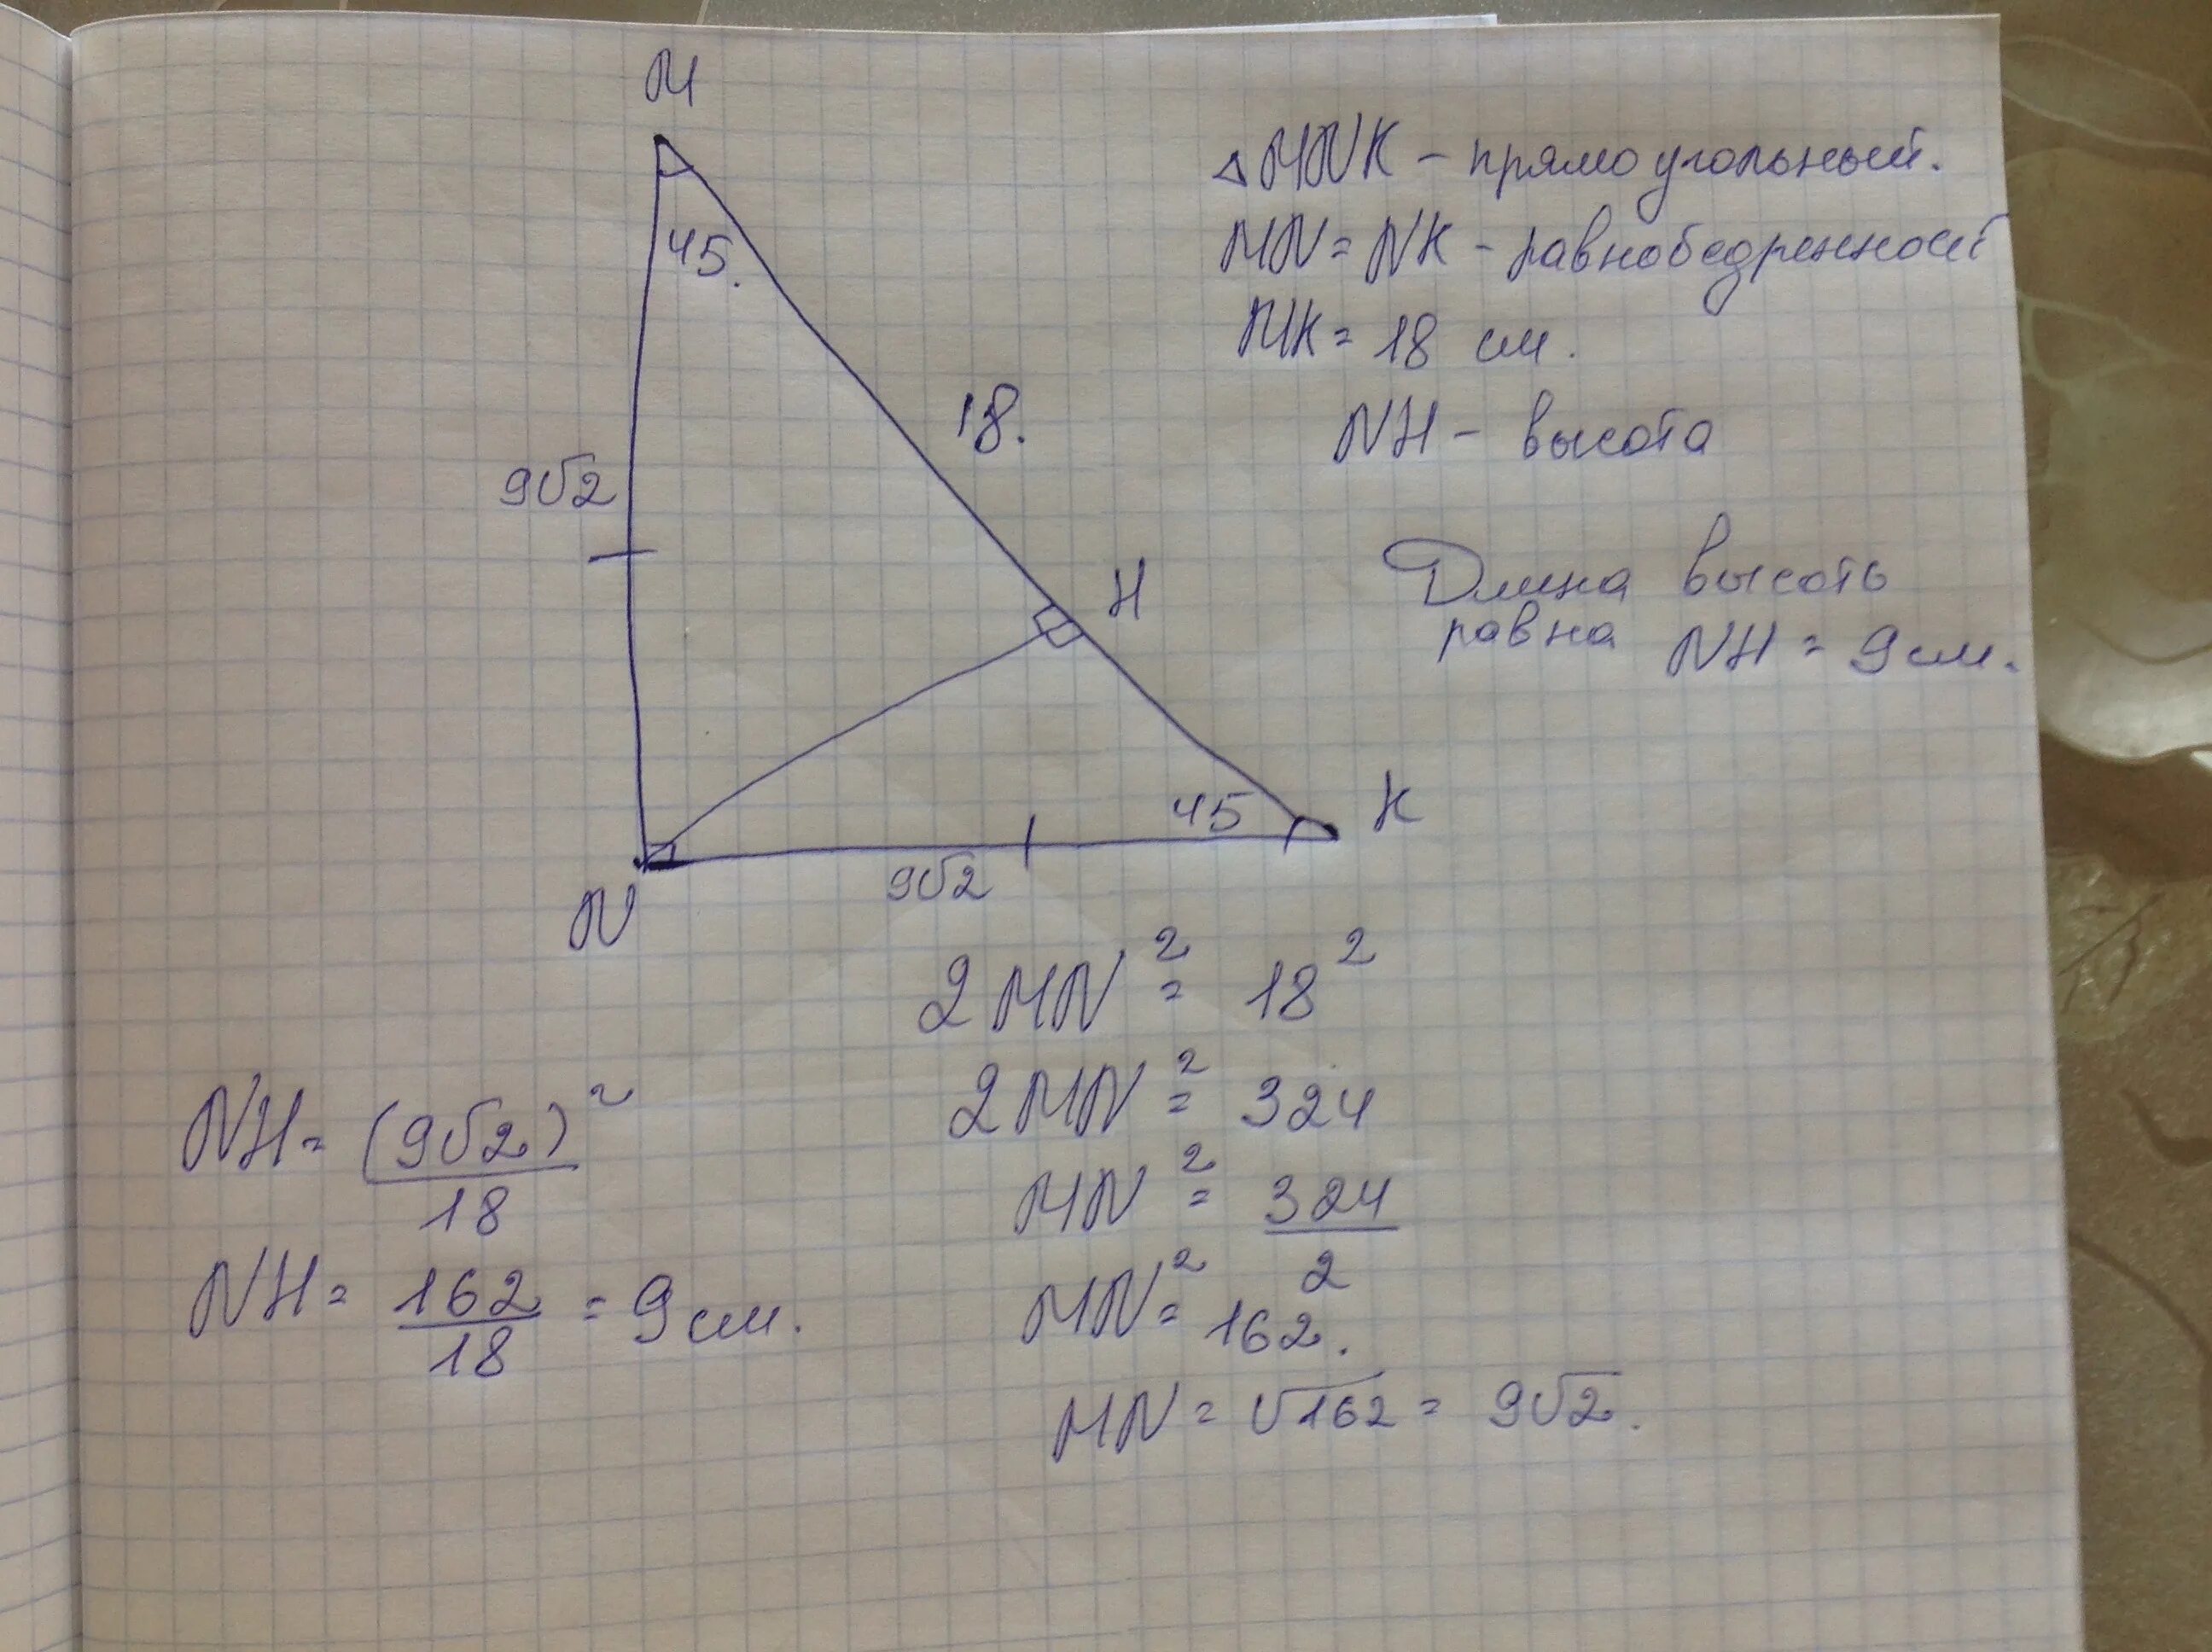 M
45.
18.
9√2
H
45
K
9√2
N
△MNK – прямоугольный.
MN = NK – равнобедренност
MK = 18 см.
NH – высота
Длина высоть
равна NH = 9 см.
2MN² = 18²
2MN² = 324
MN² = 324/2
MN² = 162.
MN = √162 = 9√2.
NH = (9√2)²/18
NH = 162/18 = 9 см.